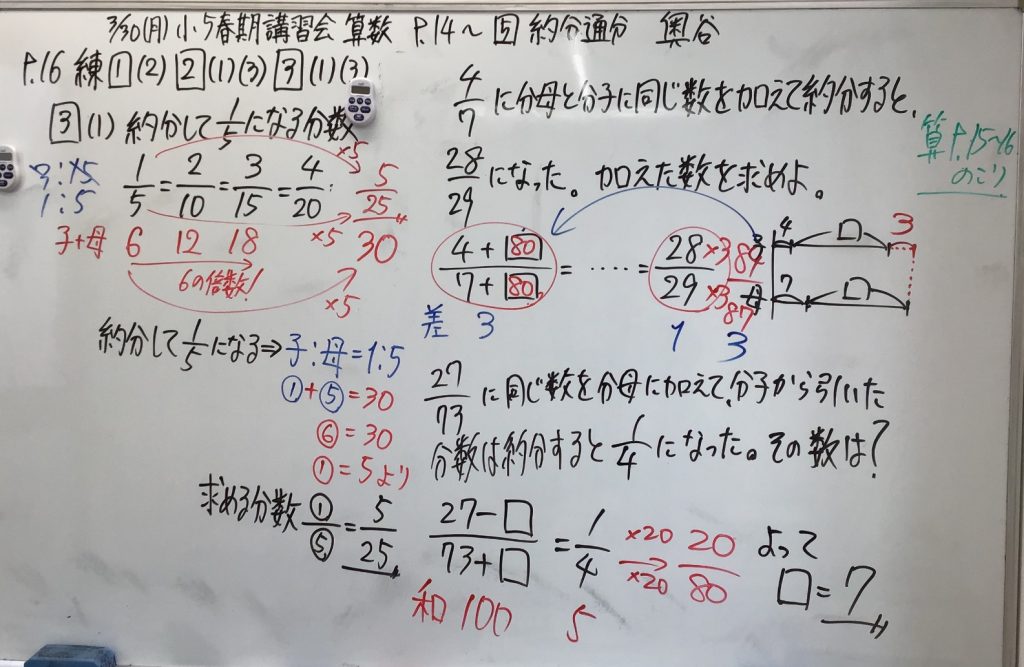 3/30(月) 小5春期講習会 算数 P.14～ 5 約分通分 奥谷
P.16 練 1(2) 2(1)(3) 3(1)(3)
3(1) 約分して1/5になる分数
1/5 = 2/10 = 3/15 = 4/20 5/25
×5
×5
1:5
子+母 6 12 18 30
6の倍数!
×5
約分して1/5になる⇒子:母=1:5
①+⑤=30
⑥=30
①=5より
求める分数 ①/⑤ = 5/25
4/7に分母と分子に同じ数を加えて約分すると、
28/29になった。加えた数を求めよ。
(4+80)/(7+80) = ······ = 28/29 ×3 84 ×3 87
差 3 1 3
子 4 □ 3
母 7 □
27/73に同じ数を分母に加えて、分子から引いた
分数は約分すると1/4になった。その数は?
(27-□)/(73+□) = 1/4 ×20 ×20 20/80 よって
□=7
和 100 5
算 P.15～16
のこり